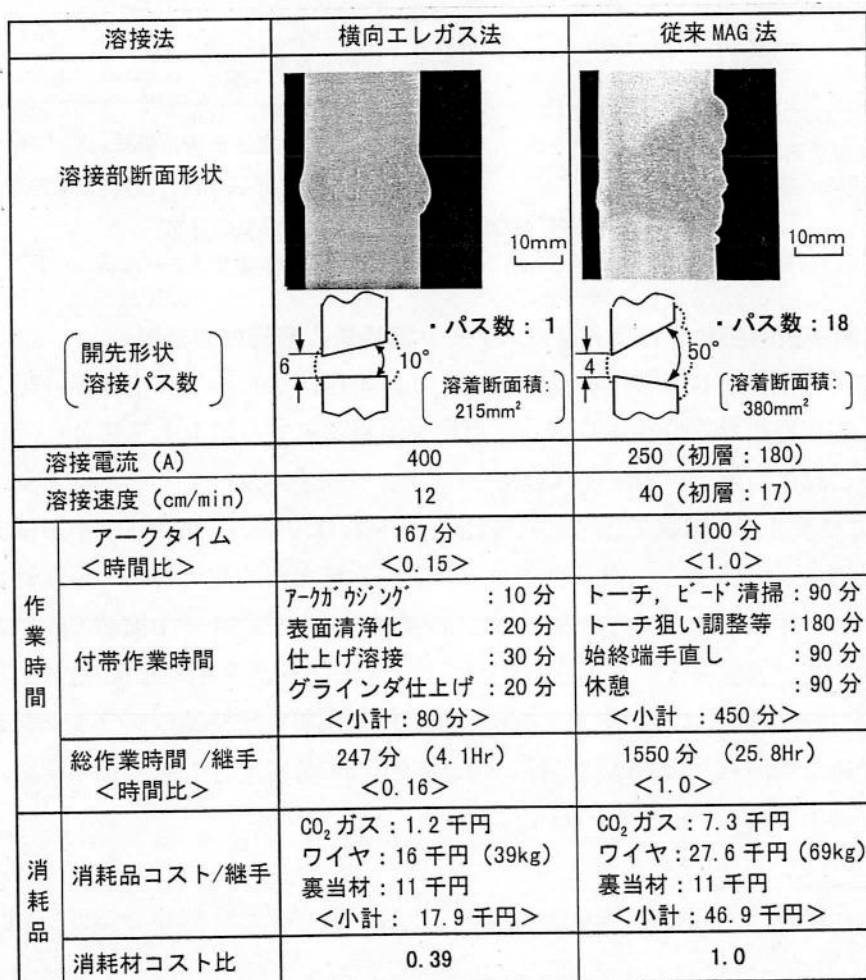 溶接法 横向エレガス法 従来 MAG 法
溶接部断面形状
10mm
10mm
開先形状
溶接パス数
6
10°
・パス数：1
溶着断面積：
215mm²
4
50°
・パス数：18
溶着断面積：
380mm²
溶接電流（A） 400 250（初層：180）
溶接速度（cm/min） 12 40（初層：17）
作業時間
アークタイム 167 分 1100 分
＜時間比＞ ＜0.15＞ ＜1.0＞
付帯作業時間
ｱｰｸｶﾞｳｼﾞﾝｸﾞ ：10 分
表面清浄化 ：20 分
仕上げ溶接 ：30 分
グラインダ仕上げ ：20 分
＜小計：80 分＞
トーチ，ﾋﾞｰﾄﾞ清掃：90 分
トーチ狙い調整等 ：180 分
始終端手直し ：90 分
休憩 ：90 分
＜小計：450 分＞
総作業時間 /継手 247 分 （4.1Hr） 1550 分 （25.8Hr）
＜時間比＞ ＜0.16＞ ＜1.0＞
消耗品
消耗品コスト/継手
CO₂ガス：1.2 千円
ワイヤ：16 千円（39kg）
裏当材：11 千円
＜小計：17.9 千円＞
CO₂ガス：7.3 千円
ワイヤ：27.6 千円（69kg）
裏当材：11 千円
＜小計：46.9 千円＞
消耗材コスト比 0.39 1.0